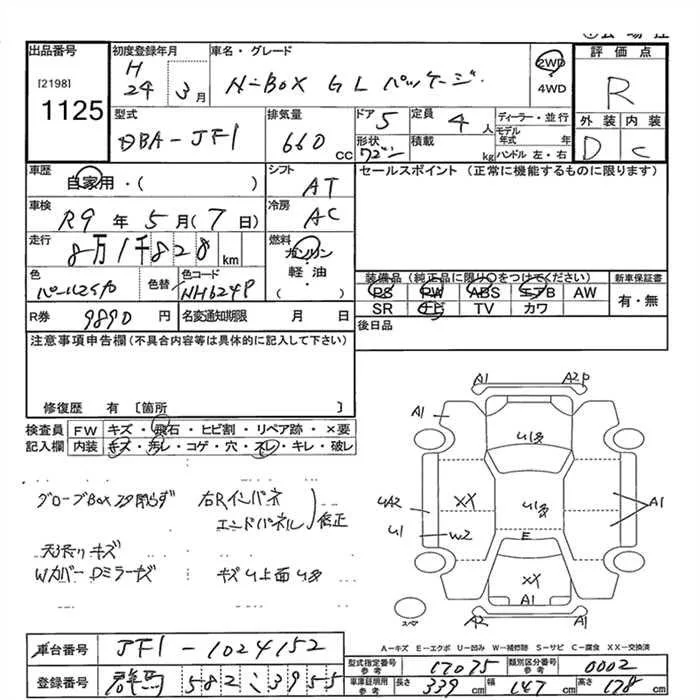 出品番号
[2198]
1125
初度登録年月
H
24 3月
車名・グレード
N-BOX GLパッケージ
2WD
4WD
評価点
R
外装 内装
D C
型式
DBA-JF1
排気量
660 cc
ドア 5
形状
ワゴン
定員 4 人
積載 kg
ディーラー・並行
モデル年式 年
ハンドル 左・右
車歴
自家用・( )
シフト
AT
セールスポイント（正常に機能するものに限ります）
車検
R9年5月(7日)
冷房
AC
走行
8万1千828km
燃料
ガソリン
軽油
( )
色
パールマイカ
色替
色コード
NH624P
装備品（純正品に限り〇をつけてください）
PS PW ABS エアB AW
SR ナビ TV カワ
新車保証書
有・無
R券 9890円
名変通知期限 月 日
後日品
注意事項申告欄（不具合内容等は具体的に記入して下さい）
修復歴 有〔箇所 〕
検査員記入欄
FW キズ・飛石・ヒビ割・リペア跡・×要
内装 キズ・汚レ・コゲ・穴・スレ・キレ・破レ
グローブBox 閉らず
右Rインパネ
エンドパネル 修正
天張りキズ
Wカバー Dミラーキズ
A1 A2P
A1
XX
UA2
U1
W2
A1
E
XX
A1
A2 A1
スペア
A－キズ E－エクボ U－凹み W－補修跡 S－サビ C－腐食 XX－交換済
車台番号 JF1-1024152
登録番号 群馬 582 こ 3955
型式指定番号 参考 17075
類別区分番号 参考 0002
車庫証明用 参考
長さ 339cm
幅 147cm
高さ 178cm